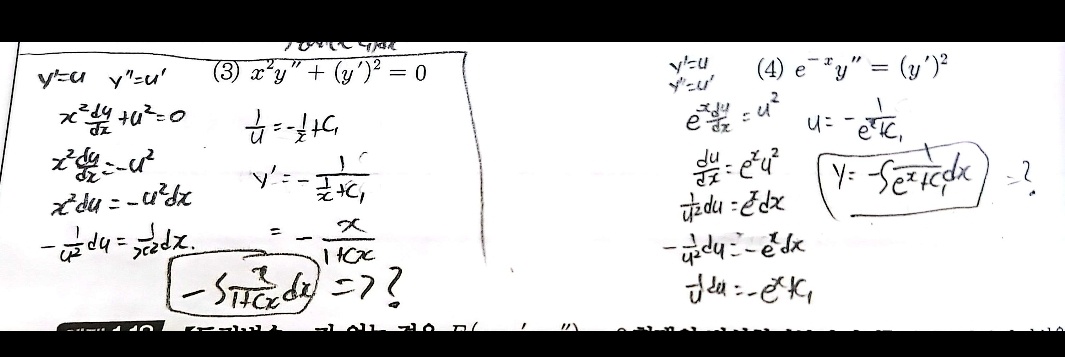 y'=u y''=u' (3) x²y″ + (y′)² = 0
x² du/dx + u² = 0
x² du/dx = -u²
x²du = -u²dx
-1/u² du = 1/x² dx.
1/u = -1/x + C₁
y' = - 1/(1/x + C₁)
= - x/(1+Cx)
-∫ x/(1+Cx) dx = ??
y'=u
y''=u'
(4) e⁻ˣy″ = (y′)²
e⁻ˣ du/dx = u²
du/dx = eˣu²
1/u² du = eˣdx
-1/u² du = -eˣdx
1/u du = -eˣ+C₁
u = - 1/(eˣ+C₁)
y = -∫ 1/(eˣ+C₁) dx = ?